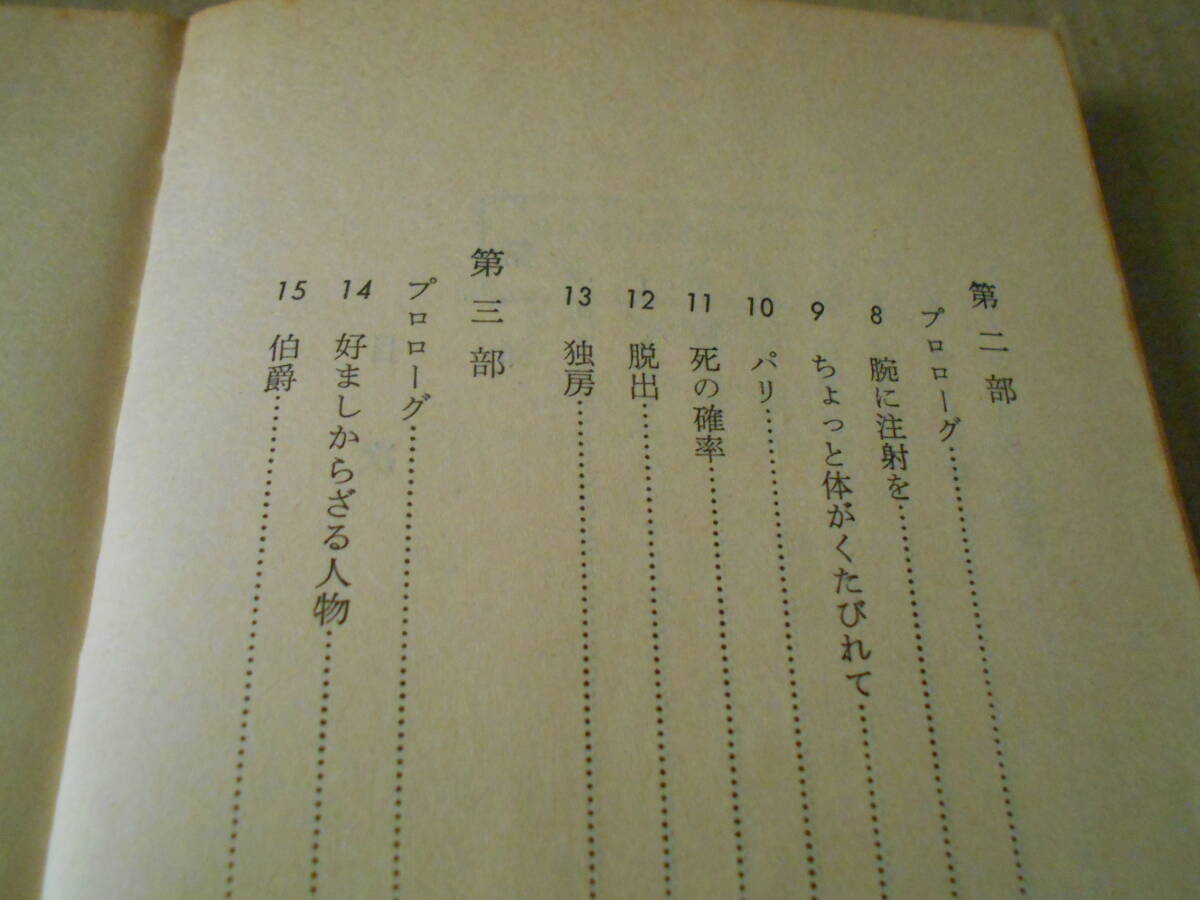 第二部
プロローグ
8 腕に注射を
9 ちょっと体がくたびれて
10 パリ
11 死の確率
12 脱出
13 独房
第三部
プロローグ
14 好ましからざる人物
15 伯爵